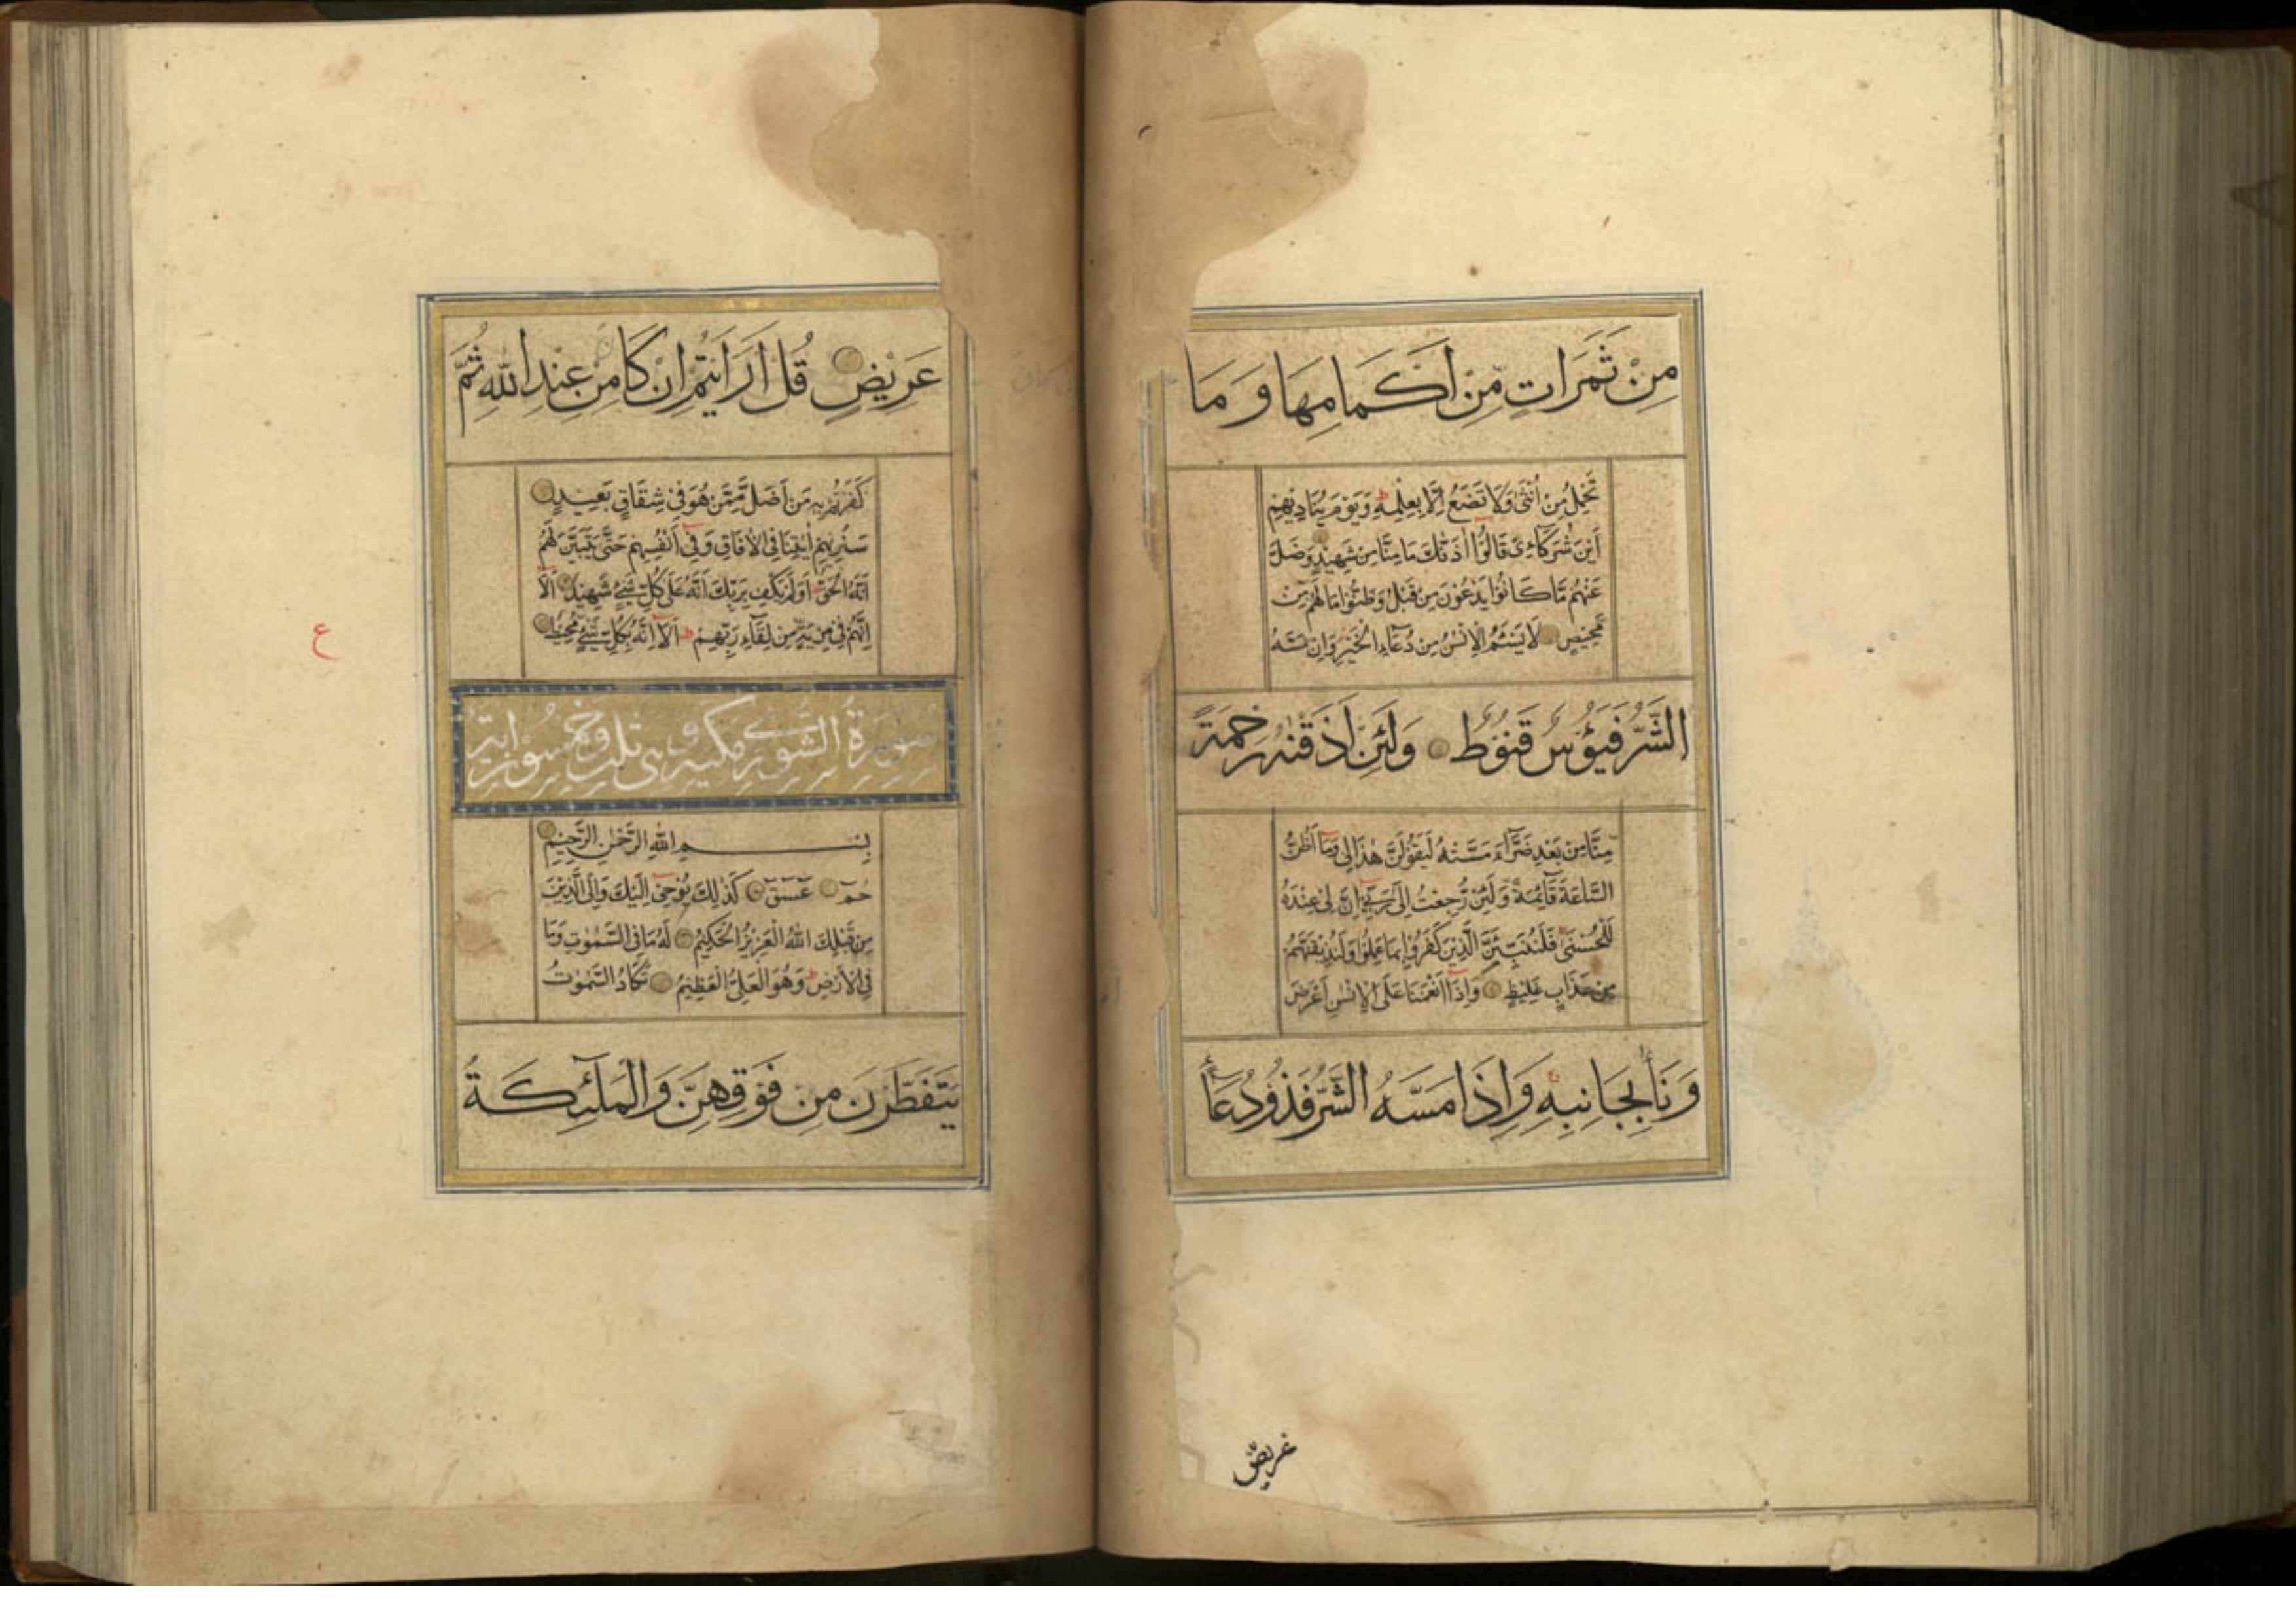 مِنْ ثَمَرَاتٍ مِّنْ اَكْمَامِهَا وَمَا
تَحْمِلُ مِنْ اُنْثٰى وَلَا تَضَعُ اِلَّا بِعِلْمِهٖ ط وَيَوْمَ يُنَادِيْهِمْ
اَيْنَ شُرَكَاءِىْ قَالُوْٓا اٰذَنّٰكَ مَا مِنَّا مِنْ شَهِيْدٍ وَضَلَّ
عَنْهُمْ مَّا كَانُوْا يَدْعُوْنَ مِنْ قَبْلُ وَظَنُّوْا مَا لَهُمْ مِّنْ
مَّحِيْصٍ لَا يَسْئَمُ الْاِنْسٰنُ مِنْ دُعَآءِ الْخَيْرِ وَاِنْ مَّسَّهُ
الشَّرُّ فَيَؤُسٌ قَنُوْطٌ وَلَئِنْ اَذَقْنٰهُ رَحْمَةً
مِّنَّا مِنْ بَعْدِ ضَرَّآءَ مَسَّتْهُ لَيَقُوْلَنَّ هٰذَا لِى وَمَآ اَظُنُّ
السَّاعَةَ قَآئِمَةً وَلَئِنْ رُّجِعْتُ اِلٰى رَبِّىْٓ اِنَّ لِىْ عِنْدَهُ
لَلْحُسْنٰى فَلَنُنَبِّئَنَّ الَّذِيْنَ كَفَرُوْا بِمَا عَمِلُوْا وَلَنُذِيْقَنَّهُمْ
مِنْ عَذَابٍ غَلِيْظٍ وَاِذَآ اَنْعَمْنَا عَلَى الْاِنْسٰنِ اَعْرَضَ
وَنَاٰ بِجَانِبِهٖ وَاِذَا مَسَّهُ الشَّرُّ فَذُوْ دُعَآءٍ
عريض
عَرِيْضٍ قُلْ اَرَاَيْتُمْ اِنْ كَا مِنْ عِنْدِ اللّٰهِ ثُمَّ
كَفَرْتُمْ بِهٖ مَنْ اَضَلُّ مِمَّنْ هُوَ فِىْ شِقَاقٍ بَعِيْدٍ
سَنُرِيْهِمْ اٰيٰتِنَا فِى الْاٰفَاقِ وَفِىْٓ اَنْفُسِهِمْ حَتّٰى يَتَبَيَّنَ لَهُمْ
اَنَّهُ الْحَقُّ ط اَوَلَمْ يَكْفِ بِرَبِّكَ اَنَّهُ عَلٰى كُلِّ شَىْءٍ شَهِيْدٌ اَلَآ
اِنَّهُمْ فِىْ مِرْيَةٍ مِّنْ لِقَآءِ رَبِّهِمْ ط اَلَآ اِنَّهُ بِكُلِّ شَىْءٍ مُحِيْطٌ
ع
سُوْرَةُ الشُّوْرٰى مكية وهى ثلث وخمسون اية
بِسْمِ اللّٰهِ الرَّحْمٰنِ الرَّحِيْمِ
حٰمٓ عٓسٓقٓ كَذٰلِكَ يُوْحِىْٓ اِلَيْكَ وَاِلَى الَّذِيْنَ
مِنْ قَبْلِكَ اللّٰهُ الْعَزِيْزُ الْحَكِيْمُ لَهُ مَا فِى السَّمٰوٰتِ وَمَا
فِى الْاَرْضِ ط وَهُوَ الْعَلِىُّ الْعَظِيْمُ تَكَادُ السَّمٰوٰتُ
يَتَفَطَّرْنَ مِنْ فَوْقِهِنَّ وَالْمَلٰٓئِكَةُ